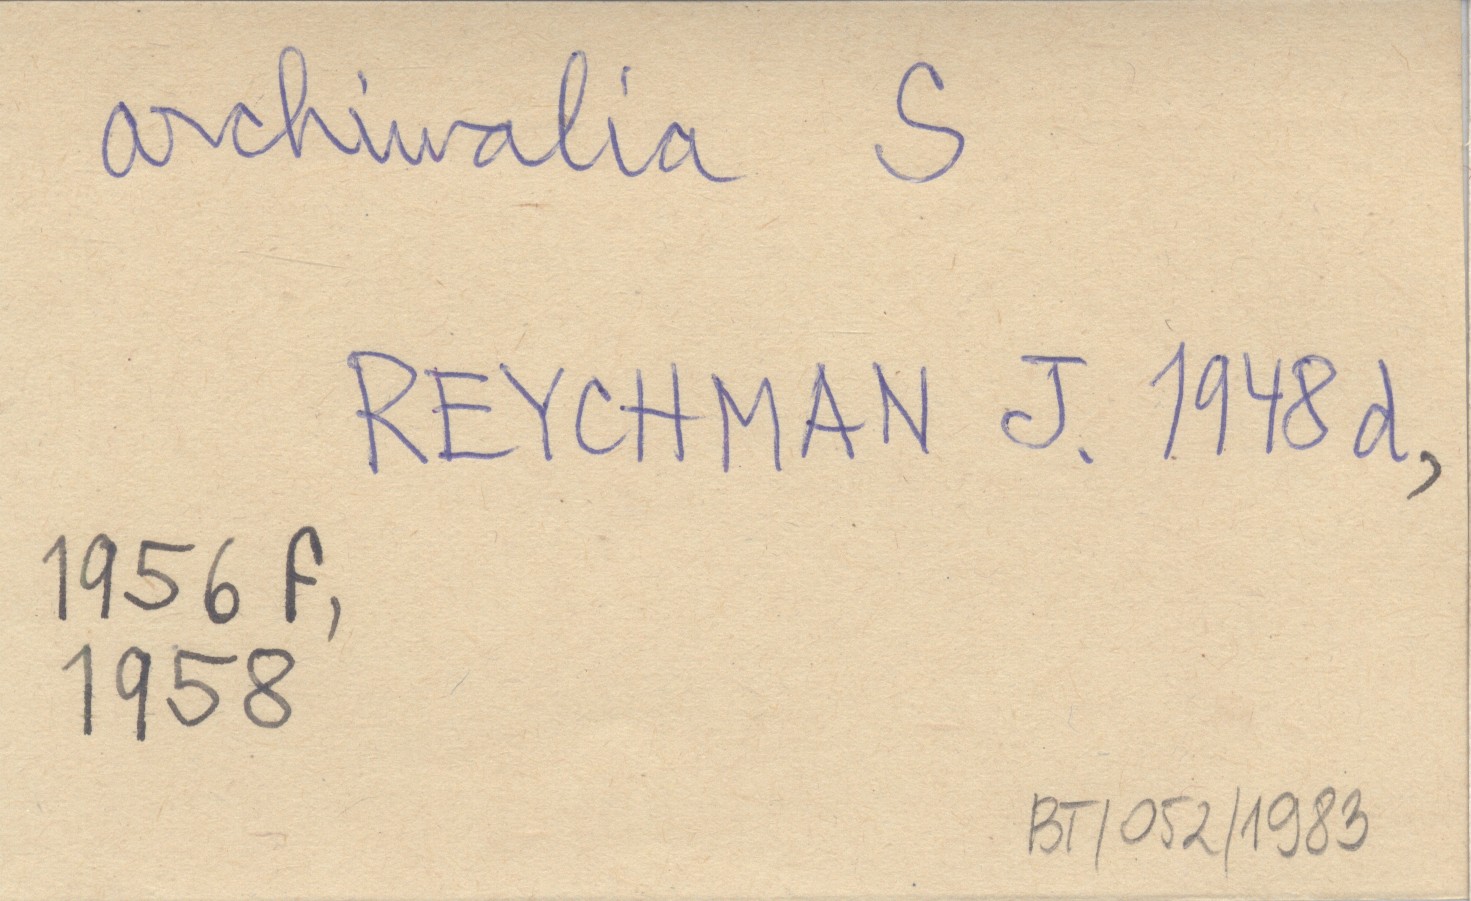 archiwalia S
REYCHMAN J. 1948d,
1956 f,
1958
BT/052/1983